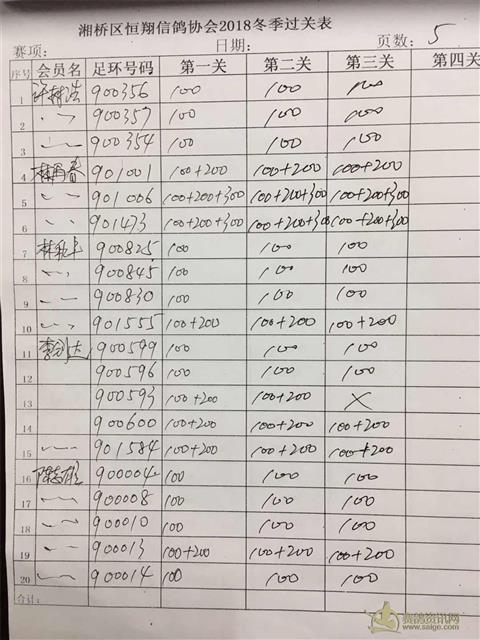 湘桥区恒翔信鸽协会2018冬季过关表
赛项: 日期: 页数: 5
序号 会员名 足环号码 第一关 第二关 第三关 第四关
1 900356 100 100 100
2 〃 900357 100 100 100
3 〃 900354 100 100 100
4 901001 100+200 100+200 100+200
5 〃 901006 100+200+300 100+200+300 100+200+300
6 〃 901473 100+200+300 100+200+300 100+200+300
7 900825 100 100 100
8 〃 900845 100 100 100
9 〃 900830 100 100 100
10 〃 901555 100+200 100+200 100+200
11 李剑达 900599 100 100 100
12 900596 100 100 100
13 900593 100+200 100+200 ×
14 900600 100+200 100+200 100+200
15 〃 901584 100+200 100+200 100+200
16 陈志雄 900004 100 100 100
17 〃 900008 100 100 100
18 〃 900010 100 100 100
19 〃 900013 100+200 100+200 100+200
20 〃 900014 100 100 100
合计:
赛鸽资讯网
www.saige.com